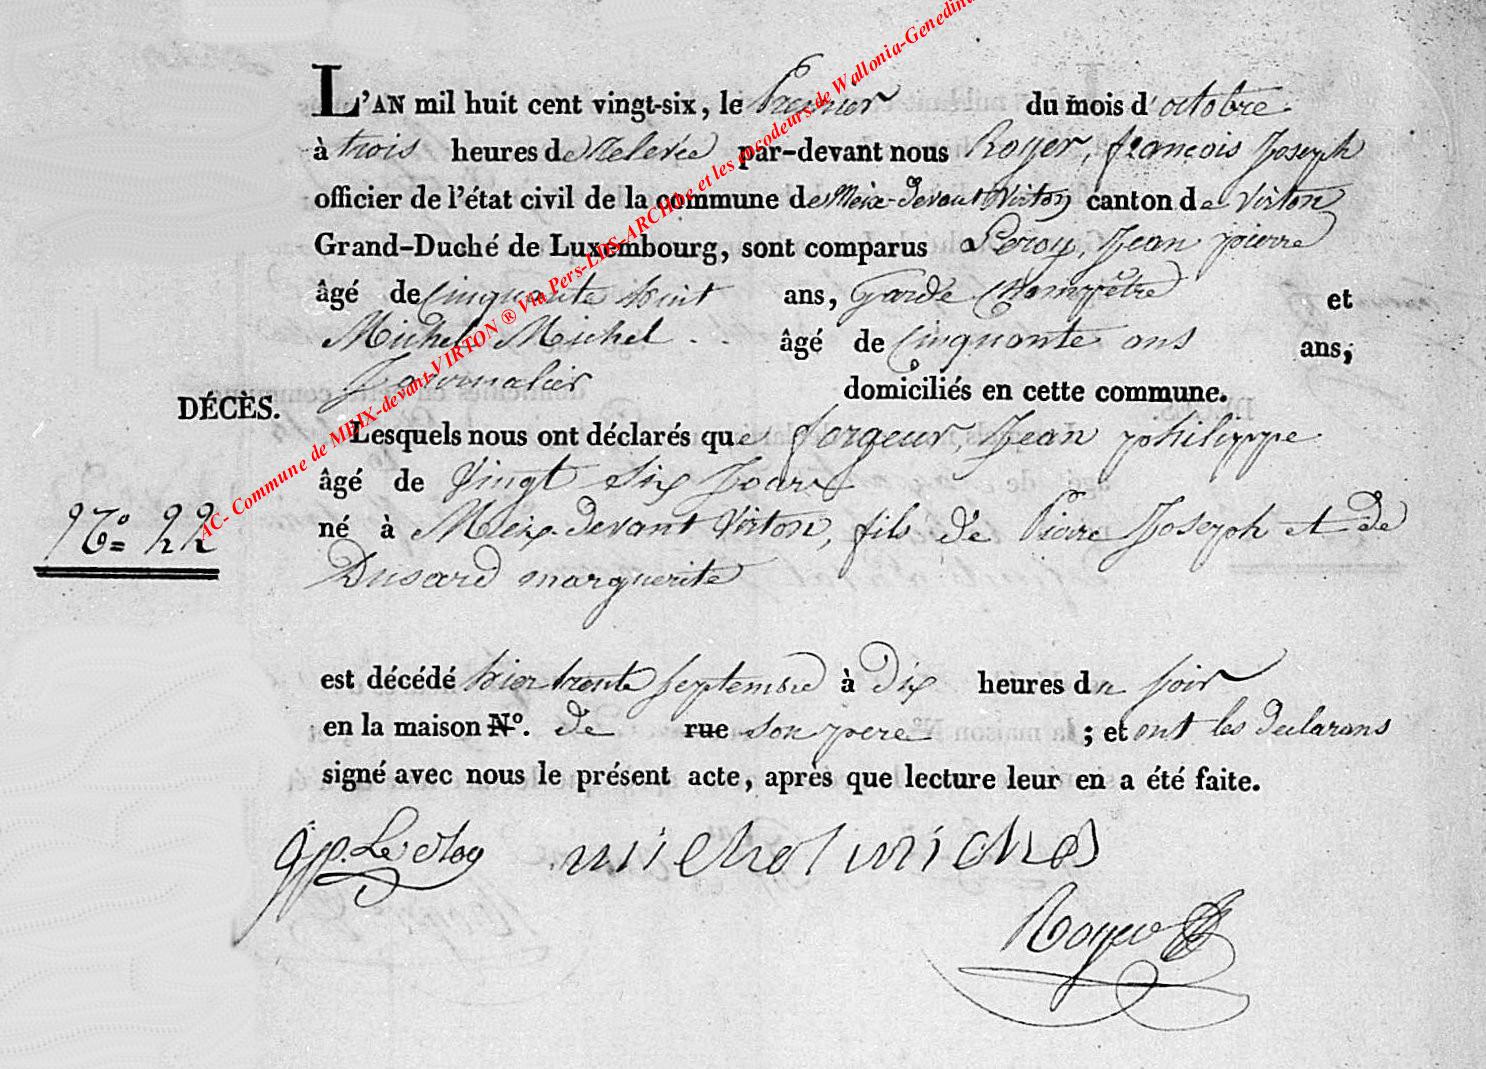 L'AN mil huit cent vingt-six, le Premier du mois d'octobre
à trois heures de Relevée par-devant nous Royer, françois Joseph
officier de l'état civil de la commune de Meix-devant Virton canton de Virton
Grand-Duché de Luxembourg, sont comparus Leroy, Jean pierre
âgé de Cinquante huit ans, Garde Champêtre et
Michel Michel âgé de Cinquante ans ans,
Journalier domiciliés en cette commune.
DÉCÈS.
Lesquels nous ont déclarés que forgeur, Jean philippe
âgé de Vingt Six Jours
N° 22
né à Meix-devant Virton, fils de Pierre Joseph et de
Dusard marguerite
est décédé hier trente Septembre à Dix heures du soir
en la maison N°. de rue son pere ; et ont les declarans
signé avec nous le présent acte, après que lecture leur en a été faite.
michel michel
Royer
AC- Commune de MEIX-devant-VIRTON ® Via Pers-LDS-ARCHive et les encodeurs de Wallonia-Genedin